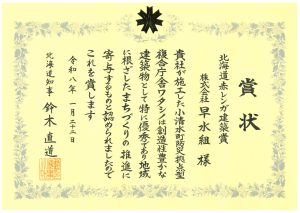 賞状
北海道赤レンガ建築賞
株式会社 早水組 様
貴社が施工した小清水町防災拠点型
複合庁舎ワタシノは創造性豊かな
建築物として特に優秀であり地域
に根ざしたまちづくりの推進に
寄与するものと認められましたので
これを賞します
令和八年一月二十三日
北海道知事 鈴木直道